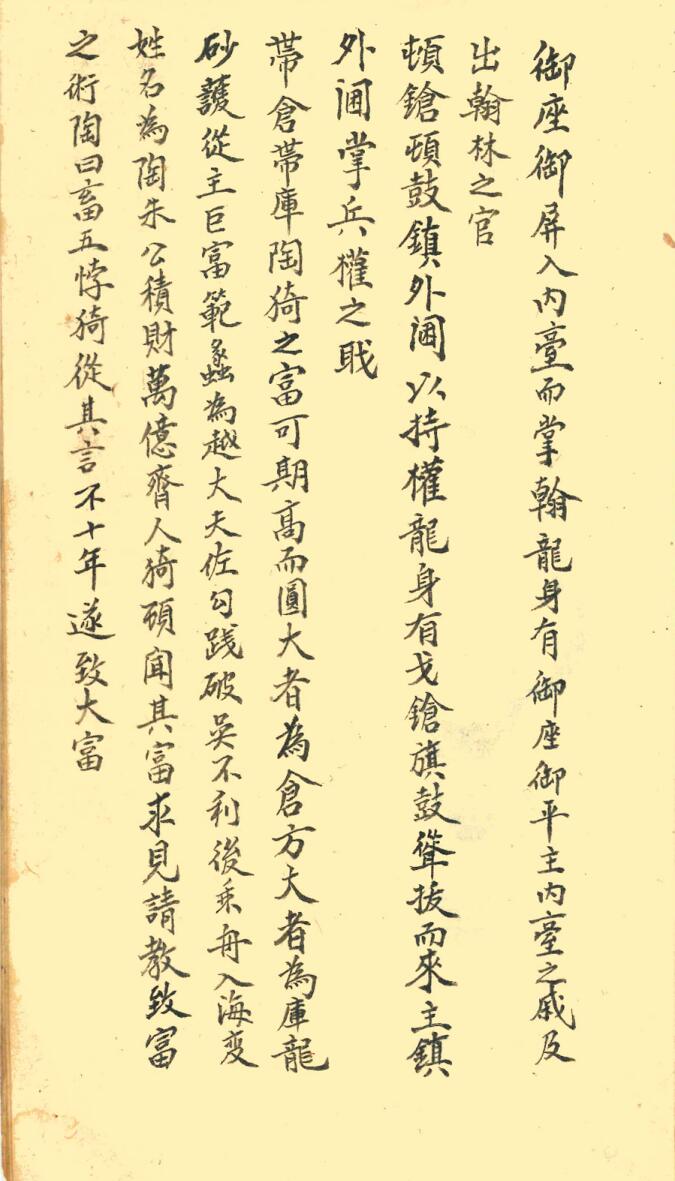 御座御屏入內臺而掌翰龍身有御座御平主內臺之戚及
出翰林之官
頓鎗頓鼓鎮外閫以持權龍身有戈鎗旗鼓聳拔而來主鎮
外閫掌兵權之戢
帶倉帶庫陶猗之富可期高而圓大者為倉方大者為庫龍
砂護從主巨富範蠡為越大夫佐勾踐破吳不利後乘舟入海变
姓名為陶朱公積財萬億齊人猗頓聞其富求見請教致富
之術陶曰畜五悖猗從其言不十年遂致大富